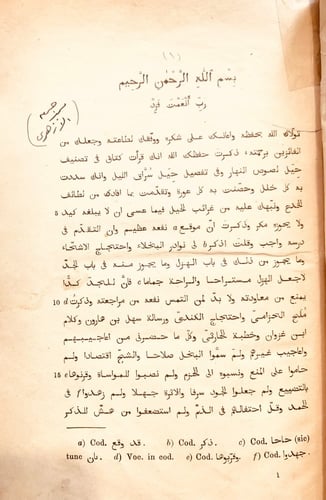 (١)
بسم الله الرحمن الرحيم
رب انعمت فزد
تولاك الله بحفظه واعانك على شكره ووفقك لطاعته وجعلك من
الفائزين برحمته، ذكرت حفظك الله انك قرأت كتابى فى تصنيف
حيل لصوص النهار وفى تفصيل حيل سراق الليل وانك سددت
به كل خلل وحصنت به كل عورة وتقدمت بما افادك من لطائف
الخدع ونبهك عليه من غرائب الحيل فيما عسى ان لا يبلغه كيد 5
ولا يجوزه مكر وذكرت ان موقع a نفعه عظيم وان التقدم فى
درسه واجب وقلت اذكر b لى نوادر البخلاء واحتجاج الاشحاء
وما يجوز من ذلك فى باب الهزل وما يجوز منه فى باب الجد
لاجعل الهزل مستراحا والراحة جماما c فان للجد كدا
يمنع من معاودته ولا بد لمن التمس نفعه من مراجعته وذكرت d 10
ملح الحزامى واحتجاج الكندى ورسالة سهل بن هارون وكلام
ابن غزوان وخطبة الحارثى وكل ما حضرنى من اعاجيبهم
واعاجيب غيرهم ولم سموا البخل صلاحا والشح اقتصادا ولم
حاموا على المنع ونسبوه الى الحزم ولم نصبوا للمواساة وقرنوها e
بالتضييع ولم جعلوا الجود سرفا والاثرة جهلا ولم زهدوا f فى 15
الحمد وقل احتفالهم فى الذم ولم استضعفوا من هش للذكر
a) Cod. قد وقع. b) Cod. ذكر. c) Cod. حاحا (sic)
tunc بان. d) Voc. in cod. e) Cod. وفرىوها. f) Cod. جهدوا.
1